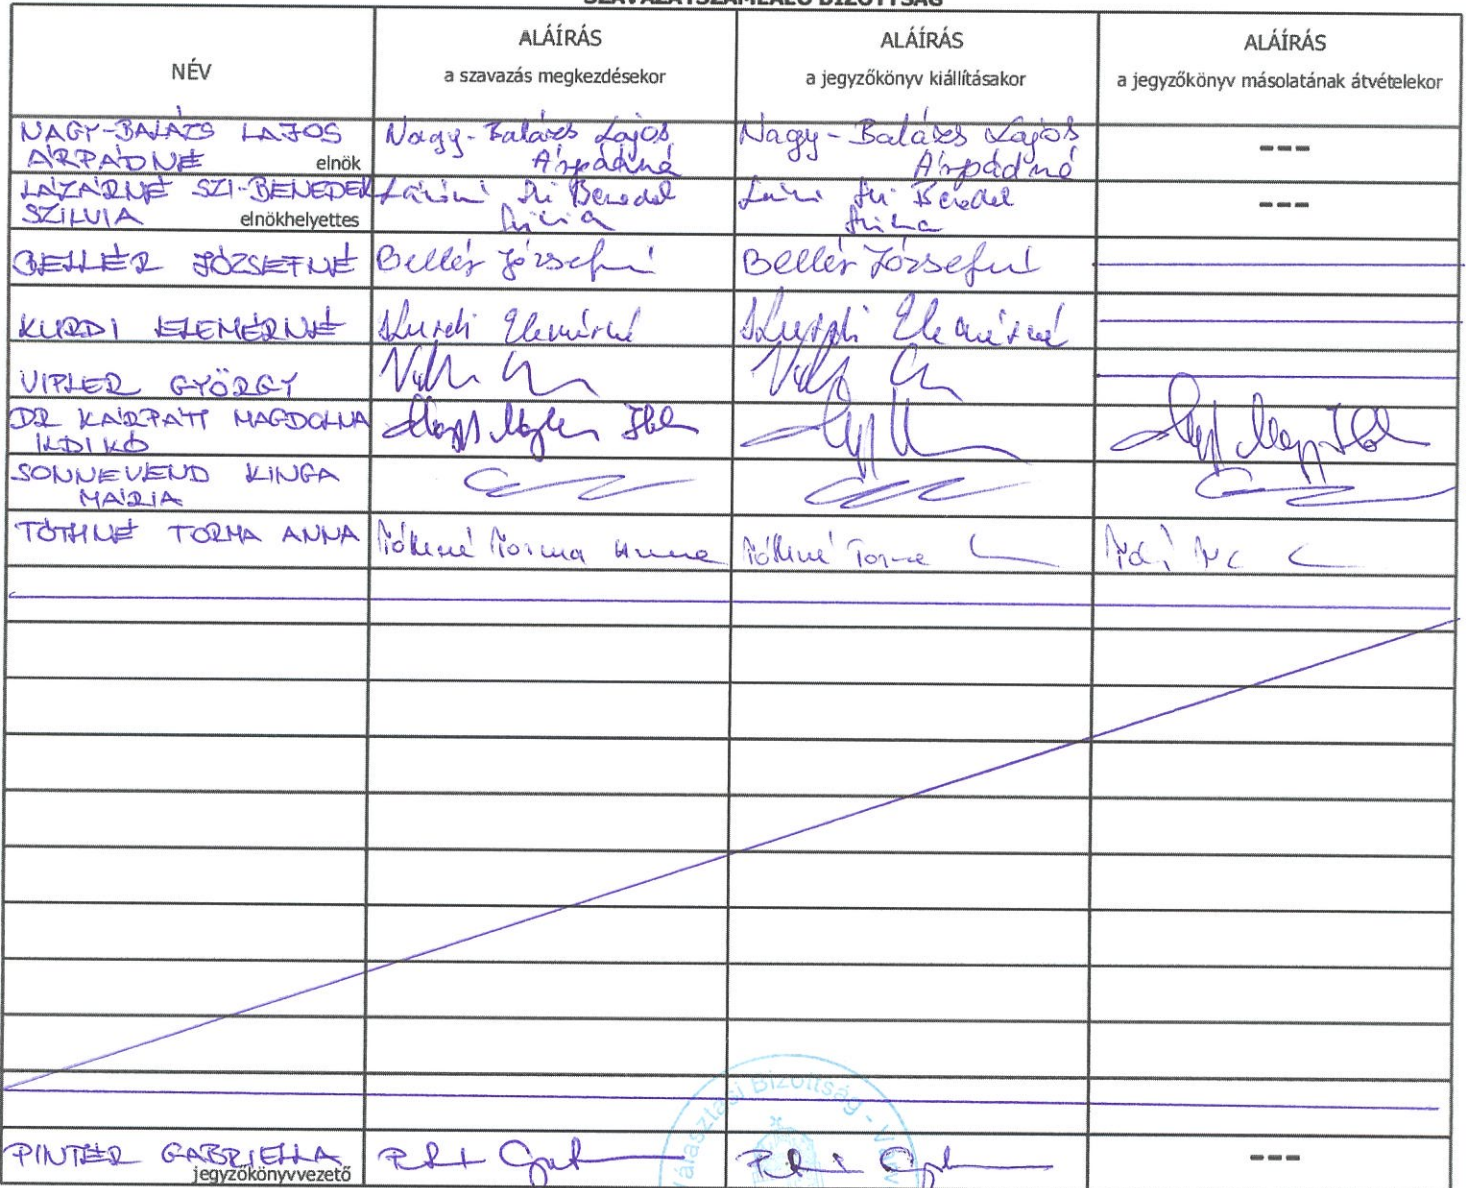 SZAVAZATSZÁMLÁLÓ BIZOTTSÁG
NÉV
ALÁÍRÁS
a szavazás megkezdésekor
ALÁÍRÁS
a jegyzőkönyv kiállításakor
ALÁÍRÁS
a jegyzőkönyv másolatának átvételekor
NAGY-BALÁZS LAJOS
ÁRPÁDNÉ
elnök
Nagy-Balázs Lajos
Árpádné
Nagy-Balázs Lajos
Árpádné
---
LÁZÁRNÉ SZI-BENEDEK
SZILVIA
elnökhelyettes
---
BELLÉR JÓZSEFNÉ
Bellér Józsefné
Bellér Józsefné
KURDI ELEMÉRNÉ
Kurdi Elemérné
Kurdi Elemérné
VIPLER GYÖRGY
DR KÁRPÁTI MAGDOLNA
ILDIKÓ
SONNEVEND KINGA
MÁRIA
TÓTHNÉ TORMA ANNA
Tóthné Torma Anna
Tóthné Torma
Választási Bizottság - V
PINTÉR GABRIELLA
jegyzőkönyvvezető
---